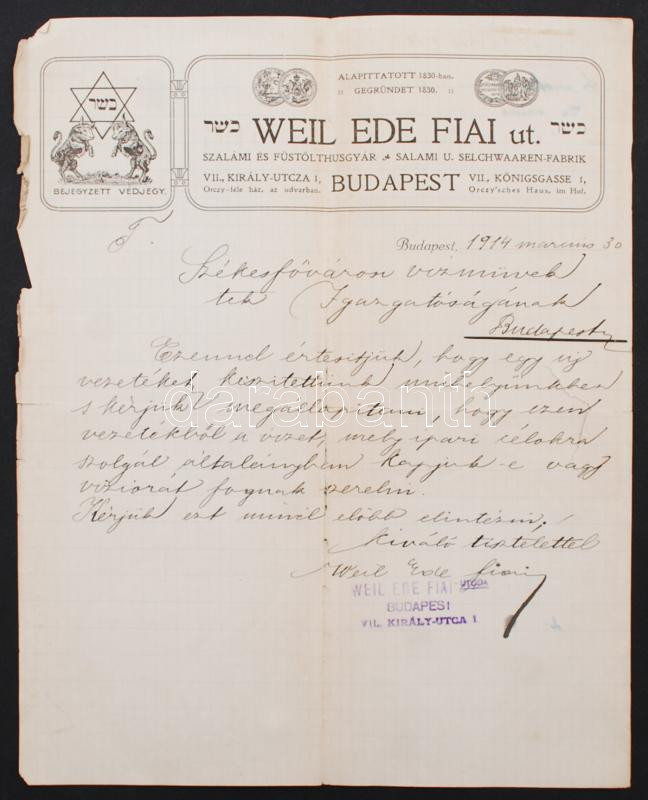 כשר
BEJEGYZETT VÉDJEGY.
ALAPITTATOTT 1830-ban.
:: GEGRÜNDET 1830. ::
כשר WEIL EDE FIAI ut. כשר
SZALÁMI ÉS FÜSTÖLTHUSGYÁR SALAMI U. SELCHWAAREN-FABRIK
VII., KIRÁLY-UTCZA 1, BUDAPEST VII., KÖNIGSGASSE 1,
Orczy-féle ház, az udvarban. Orczy'sches Haus, im Hof.
Budapest, 1914 marcius 30
T.
Székesfővárosi vizmüvek
tek Igazgatóságának
Budapesten
Ezennel értesitjük, hogy egy uj
vezetéket készitettünk mühelyünkben
s kérjük megállapitani, hogy ezen
vezetékből a vizet, mely ipari célokra
szolgál általányban kapjuk-e vagy
viziórát fognak szerelni.
Kérjük ezt minél előbb elintézni,
kiváló tisztelettel
Weil Ede fiai
WEIL EDE FIAI UTÓDA
BUDAPEST
VII., KIRÁLY-UTCA 1
darabanth